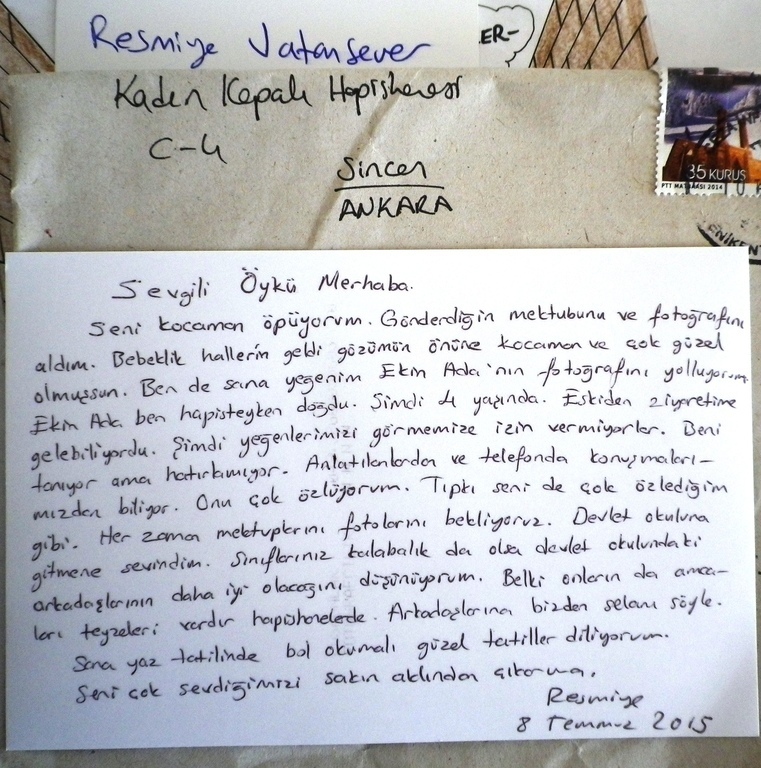 Resmiye Vatansever
ER-
Kadın Kapalı Hapishanesi
C-4
Sincan
ANKARA
35 KURUŞ
PTT MATBAASI 2014
ENİKENT
Sevgili Öykü Merhaba.
Seni kocaman öpüyorum. Gönderdiğin mektubunu ve fotoğrafını
aldım. Bebeklik hallerin geldi gözümün önüne kocaman ve çok güzel
olmuşsun. Ben de sana yeğenim Ekin Ada'nın fotoğrafını yolluyorum.
Ekin Ada ben hapisteyken doğdu. Şimdi 4 yaşında. Eskiden ziyaretime
gelebiliyordu. Şimdi yeğenlerimizi görmemize izin vermiyorlar. Beni
tanıyor ama hatırlamıyor. Anlatılanlardan ve telefonda konuşmaları-
mızdan biliyor. Onu çok özlüyorum. Tıpkı seni de çok özlediğim
gibi. Her zaman mektuplarını fotolarını bekliyoruz. Devlet okuluna
gitmene sevindim. Sınıflarınız kalabalık da olsa devlet okulundaki
arkadaşlarının daha iyi olacağını düşünüyorum. Belki onların da amca-
ları teyzeleri vardır hapishanelerde. Arkadaşlarına bizden selam söyle.
Sana yaz tatilinde bol okumalı güzel tatiller diliyorum.
Seni çok sevdiğimizi sakın aklından çıkarma.
Resmiye
8 Temmuz 2015